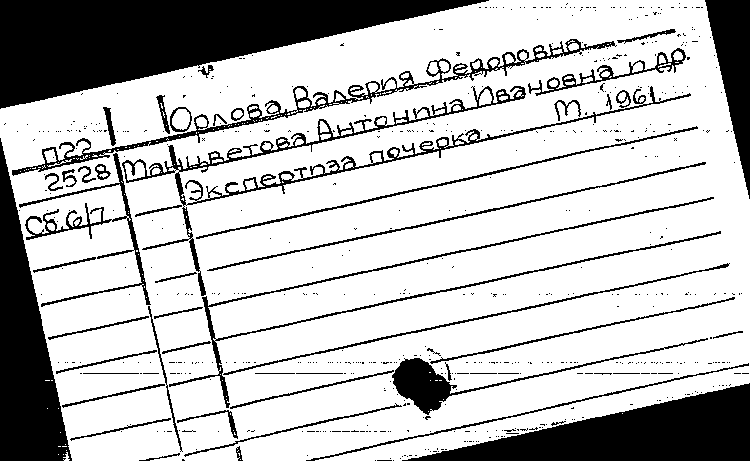 Орлова, Валерия Федоровна.
П22
2528 Манцветова, Антонина Ивановна и др.
Сб.6/7 Экспертиза почерка. М., 1961.